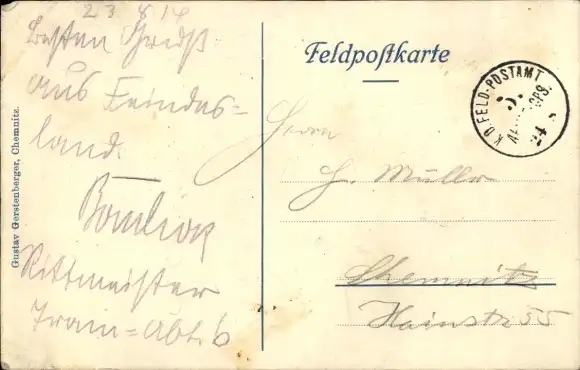 23 8 14
Besten Gruß
aus Feindes=
land.
Rittmeister
Train=Abt. 6
Gustav Gerstenberger, Chemnitz.
Feldpostkarte
K.D.FELD-POSTAMT
24 8
Herrn
H. Müller
Chemnitz
Hainstr. 55